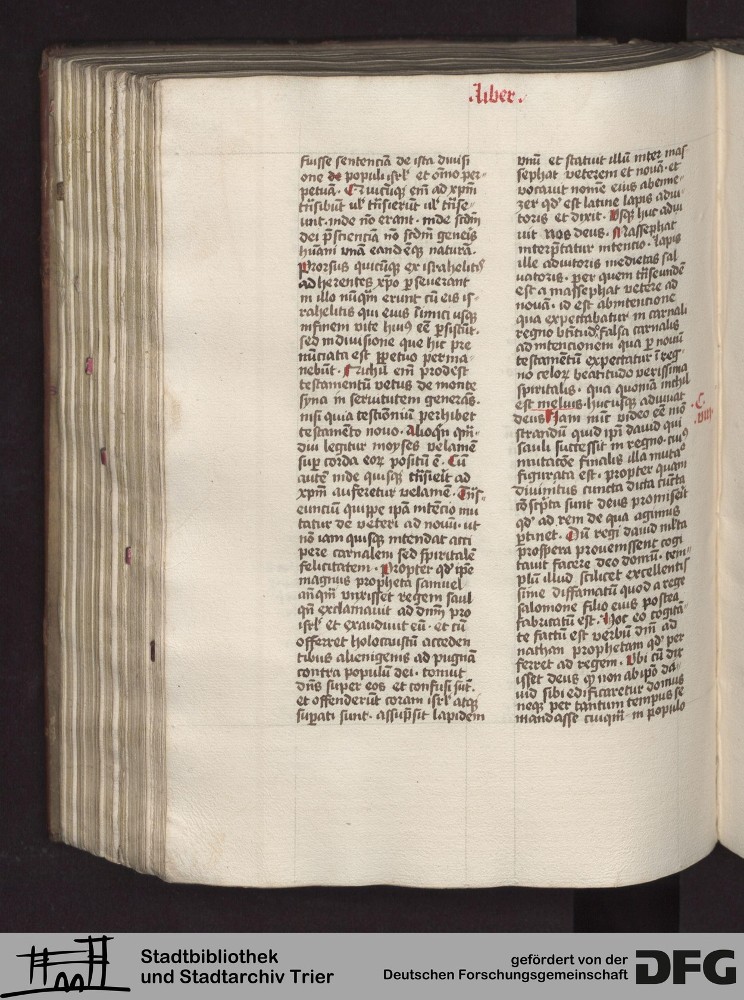 Liber.
fuisse sentenciā de ista diuisi
one de populi isrl' et oīno per-
petuā. Et quicūq̨ em̄ ad xp̄m
trāsibūt ul' trāsierūt ul' trāse-
unt. inde nō erant. inde scdm
dei p̄scienciā nō scdm geneīs
hūani vnā eandēq̨ naturā.
Prorsus quicūq̨ ex israhelitis
adherentes xp̄o p̱seuerant
in illo nūq̄m erunt cū eis is-
rahelitis qui eius īimici usq̨
in finem vite hui⁹ eē p̱sistūt.
sed in diuisione que hic pre
nūciata est p̱petuo perma-
nebūt. Nichil em̄ prodest
testamentū vetus de monte
syna in seruitutem generās.
nisi quia testīoniū perhibet
testamēto nouo. Alioq̄n q̄m-
diu legitur moyses velamē
sup̱ corda eoꝝ positū ē. Cū
autē inde quisq̨ trāsieīt ad
xp̄m auferetur velamē. Trās-
eunciū quippe ip̄a intēcio mu
tatur de veteri ad nouū. ut
nō iam quisq̨ intendat acci
pere carnalem sed sp̄ritalē
felicitatem. Propter qd' ip̄e
magnus propheta samuel
an̄q̄m vnxisset regem saul
qn̄ exclamauit ad dn̄m pro
isrl' et exaudiuit eū. et cū
offerret holocaustū acceden
tibus alienigenis ad pugnā
contra populū dei. tonuit
dn̄s super eos et confusi sūt.
et offenderūt coram isrl' atq̨
sup̱ati sunt. assūp̄sit lapidem
vnū et statuit illū inter mas
sephat veterem et nouā. et
vocauit nomē eius abenne-
zer qd' est latine lapis adiu-
toris et dixit. Vsq̨ huc adiu
uit nos deus. Massephat
interp̄tatur intencio. lapis
ille adiutoris medietas sal
uatoris. per quem trāseundū
est a massephat vetere ad
nouā. id est ab intencione
qua expectabatur in carnali
regno btītudo falsa carnalis
ad intencionem qua per nouū
testamētū expectatur ī reg-
no celoꝝ beatitudo verissima
spiritalis. qua quoniā nichil
est melius. huc usq̨ adiuuat
deus Iam nūc video eē mō
strandū quid ip̄i dauid qui
sauli successit in regno. cui⁹
mutacōe finalis illa mutaᵒ
figurata est. propter quam
diuinitus cuncta dicta cūcta
cōscrip̄ta sunt deus promiseīt
qd' ad rem de qua agimus
p̱tinet. Cū regi dauid ml'ta
prospera prouenissent cogi
tauit facere deo domū. tem-
plū illud scilicet excellentis
sime diffamatū quod a rege
salomone filio eius postea
fabricatū est. Hoc eo cogitā-
te factū est verbū dn̄i ad
nathan prophetam qd' per
ferret ad regem. Vbi cū dix
isset deus q̄ non ab ip̄o da-
uid sibi edificaretur domus
neq̨ per tantum tempus se
mandasse cuiq̄m in populo
Stadtbibliothek
und Stadtarchiv Trier
gefördert von der
Deutschen Forschungsgemeinschaft
DFG